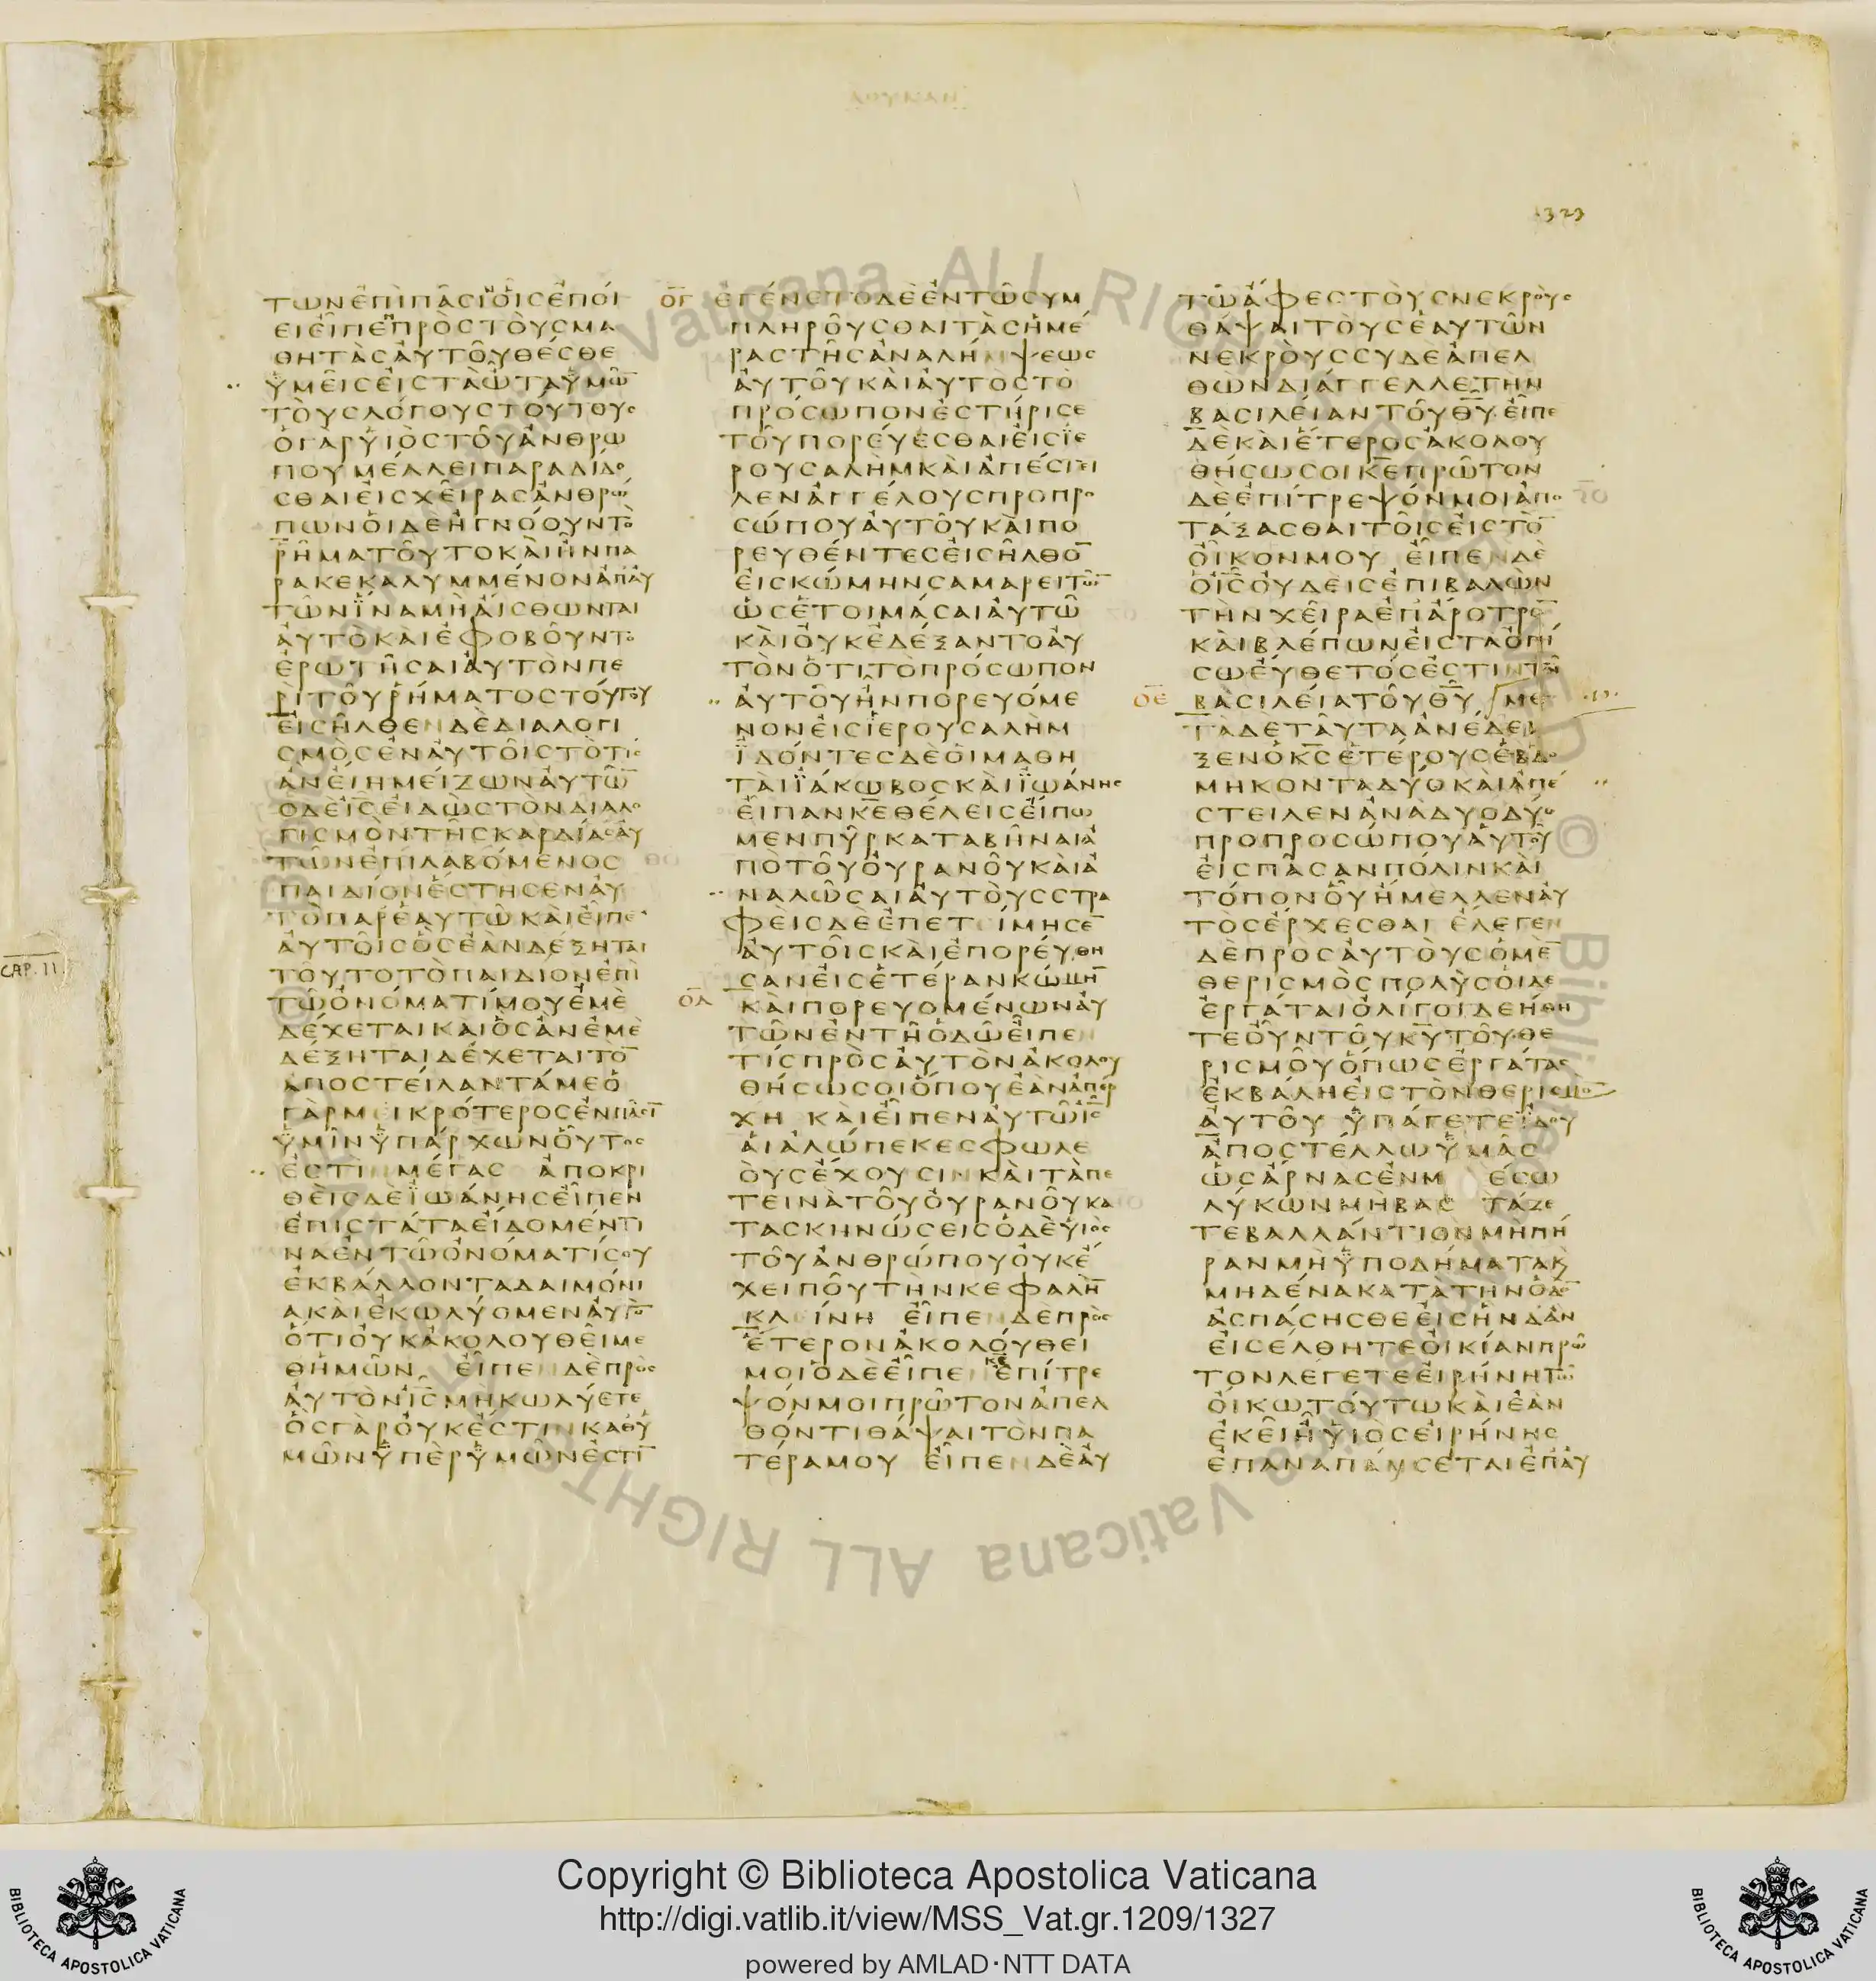 ΛΟΥΚΑΝ
323
ΤΩΝΕΠΙΠΑϹΙΟΙϹΕΠΟΙ
ΕΙΕΙΠΕΠΡΟϹΤΟΥϹΜΑ
ΘΗΤΑϹΑΥΤΟΥΘΕϹΘΕ
ΥΜΕΙϹΕΙϹΤΑΩΤΑΥΜΩ̅
ΤΟΥϹΛΟΓΟΥϹΤΟΥΤΟΥϹ
ΟΓΑΡΥΙΟϹΤΟΥΑΝΘΡΩ
ΠΟΥΜΕΛΛΕΙΠΑΡΑΔΙΔΟ
ϹΘΑΙΕΙϹΧΕΙΡΑϹΑΝΘΡΩ
ΠΩΝΟΙΔΕΗΓΝΟΟΥΝΤΟ
ΡΗΜΑΤΟΥΤΟΚΑΙΗΝΠΑ
ΡΑΚΕΚΑΛΥΜΜΕΝΟΝΑΠΑΥ
ΤΩΝΪΝΑΜΗΑΙϹΘΩΝΤΑΙ
ΑΥΤΟΚΑΙΕΦΟΒΟΥΝΤΟ
ΕΡΩΤΗϹΑΙΑΥΤΟΝΠΕ
ΡΙΤΟΥΡΗΜΑΤΟϹΤΟΥΤΟΥ
ΕΙϹΗΛΘΕΝΔΕΔΙΑΛΟΓΙ
ϹΜΟϹΕΝΑΥΤΟΙϹΤΟΤΙϹ
ΑΝΕΙΗΜΕΙΖΩΝΑΥΤΩ̅
ΟΔΕΙ̅Ϲ̅ΕΙΔΩϹΤΟΝΔΙΑΛΟ
ΓΙϹΜΟΝΤΗϹΚΑΡΔΙΑϹΑΥ
ΤΩΝΕΠΙΛΑΒΟΜΕΝΟϹ
ΠΑΙΔΙΟΝΕϹΤΗϹΕΝΑΥ
ΤΟΠΑΡΕΑΥΤΩΚΑΙΕΙΠΕ
ΑΥΤΟΙϹΟϹΕΑΝΔΕΞΗΤΑΙ
ΤΟΥΤΟΤΟΠΑΙΔΙΟΝΕΠΙ
ΤΩΟΝΟΜΑΤΙΜΟΥΕΜΕ
ΔΕΧΕΤΑΙΚΑΙΟϹΑΝΕΜΕ
ΔΕΞΗΤΑΙΔΕΧΕΤΑΙΤΟ̅
ΑΠΟϹΤΕΙΛΑΝΤΑΜΕΟ
ΓΑΡΜΕΙΚΡΟΤΕΡΟϹΕΝΠΑϹΙ̅
ΫΜΙΝΫΠΑΡΧΩΝΟΥΤΟϹ
ΕϹΤΙΝΜΕΓΑϹ ΑΠΟΚΡΙ
ΘΕΙϹΔΕΪΩΑΝΗϹΕΙΠΕΝ
ΕΠΙϹΤΑΤΑΕΙΔΟΜΕΝΤΙ
ΝΑΕΝΤΩΟΝΟΜΑΤΙϹΟΥ
ΕΚΒΑΛΛΟΝΤΑΔΑΙΜΟΝΙ
ΑΚΑΙΕΚΩΛΥΟΜΕΝΑΥΤΟ̅
ΟΤΙΟΥΚΑΚΟΛΟΥΘΕΙΜΕ
ΘΗΜΩΝ ΕΙΠΕΝΔΕΠΡΟϹ
ΑΥΤΟΝΙ̅Ϲ̅ΜΗΚΩΛΥΕΤΕ
ΟϹΓΑΡΟΥΚΕϹΤΙΝΚΑΘΥ
ΜΩΝΫΠΕΡΫΜΩΝΕϹΤΙ̅
Ο̅Γ̅ ΕΓΕΝΕΤΟΔΕΕΝΤΩϹΥΜ
ΠΛΗΡΟΥϹΘΑΙΤΑϹΗΜΕ
ΡΑϹΤΗϹΑΝΑΛΗΜΨΕΩϹ
ΑΥΤΟΥΚΑΙΑΥΤΟϹΤΟ
ΠΡΟϹΩΠΟΝΕϹΤΗΡΙϹΕ
ΤΟΥΠΟΡΕΥΕϹΘΑΙΕΙϹΪΕ
ΡΟΥϹΑΛΗΜΚΑΙΑΠΕϹΤΕΙ
ΛΕΝΑΓΓΕΛΟΥϹΠΡΟΠΡΟ
ϹΩΠΟΥΑΥΤΟΥΚΑΙΠΟ
ΡΕΥΘΕΝΤΕϹΕΙϹΗΛΘΟ̅
ΕΙϹΚΩΜΗΝϹΑΜΑΡΕΙΤΩ̅
ΩϹΕΤΟΙΜΑϹΑΙΑΥΤΩ
ΚΑΙΟΥΚΕΔΕΞΑΝΤΟΑΥ
ΤΟΝΟΤΙΤΟΠΡΟϹΩΠΟΝ
ΑΥΤΟΥΗΝΠΟΡΕΥΟΜΕ
ΝΟΝΕΙϹΪΕΡΟΥϹΑΛΗΜ
ΪΔΟΝΤΕϹΔΕΟΙΜΑΘΗ
ΤΑΙΪΑΚΩΒΟϹΚΑΙΪΩΑΝΗϹ
ΕΙΠΑΝΚ̅Ε̅ΘΕΛΕΙϹΕΙΠΩ
ΜΕΝΠΥΡΚΑΤΑΒΗΝΑΙΑ
ΠΟΤΟΥΟΥΡΑΝΟΥΚΑΙΑ
ΝΑΛΩϹΑΙΑΥΤΟΥϹϹΤΡΑ
ΦΕΙϹΔΕΕΠΕΤΕΙΜΗϹΕ̅
ΑΥΤΟΙϹΚΑΙΕΠΟΡΕΥΘΗ
ϹΑΝΕΙϹΕΤΕΡΑΝΚΩΜΗ̅
Ο̅Δ̅ ΚΑΙΠΟΡΕΥΟΜΕΝΩΝΑΥ
ΤΩΝΕΝΤΗΟΔΩΕΙΠΕΝ
ΤΙϹΠΡΟϹΑΥΤΟΝΑΚΟΛΟΥ
ΘΗϹΩϹΟΙΟΠΟΥΕΑΝΑΠΕΡ
ΧΗ ΚΑΙΕΙΠΕΝΑΥΤΩΙ̅Ϲ̅
ΑΙΑΛΩΠΕΚΕϹΦΩΛΕ
ΟΥϹΕΧΟΥϹΙΝΚΑΙΤΑΠΕ
ΤΕΙΝΑΤΟΥΟΥΡΑΝΟΥΚΑ
ΤΑϹΚΗΝΩϹΕΙϹΟΔΕΥΙΟϹ
ΤΟΥΑΝΘΡΩΠΟΥΟΥΚΕ
ΧΕΙΠΟΥΤΗΝΚΕΦΑΛΗ̅
ΚΛΕΙΝΗ ΕΙΠΕΝΔΕΠΡΟϹ
ΕΤΕΡΟΝΑΚΟΛΟΥΘΕΙ
ΜΟΙΟΔΕΕΙΠΕΝΚ̅Ε̅ΕΠΙΤΡΕ
ΨΟΝΜΟΙΠΡΩΤΟΝΑΠΕΛ
ΘΟΝΤΙΘΑΨΑΙΤΟΝΠΑ
ΤΕΡΑΜΟΥ ΕΙΠΕΝΔΕΑΥ
ΤΩΑΦΕϹΤΟΥϹΝΕΚΡΟΥϹ
ΘΑΨΑΙΤΟΥϹΕΑΥΤΩΝ
ΝΕΚΡΟΥϹϹΥΔΕΑΠΕΛ
ΘΩΝΔΙΑΓΓΕΛΛΕΤΗΝ
ΒΑϹΙΛΕΙΑΝΤΟΥΘ̅Υ̅ΕΙΠΕ
ΔΕΚΑΙΕΤΕΡΟϹΑΚΟΛΟΥ
ΘΗϹΩϹΟΙΚ̅Ε̅ΠΡΩΤΟΝ
ΔΕΕΠΙΤΡΕΨΟΝΜΟΙΑΠΟ
ΤΑΞΑϹΘΑΙΤΟΙϹΕΙϹΤΟ̅
ΟΙΚΟΝΜΟΥ ΕΙΠΕΝΔΕ
ΟΙ̅Ϲ̅ΟΥΔΕΙϹΕΠΙΒΑΛΩΝ
ΤΗΝΧΕΙΡΑΕΠΑΡΟΤΡΟ̅
ΚΑΙΒΛΕΠΩΝΕΙϹΤΑΟΠΙ
ϹΩΕΥΘΕΤΟϹΕϹΤΙΝΤΗ
Ο̅Ε̅ ΒΑϹΙΛΕΙΑΤΟΥΘ̅Υ̅ ΜΕ
ΤΑΔΕΤΑΥΤΑΑΝΕΔΕΙ
ΞΕΝΟΚ̅Ϲ̅ΕΤΕΡΟΥϹΕΒΔΟ
ΜΗΚΟΝΤΑΔΥΟΚΑΙΑΠΕ
ϹΤΕΙΛΕΝΑΝΑΔΥΟΔΥΟ
ΠΡΟΠΡΟϹΩΠΟΥΑΥΤΟΥ
ΕΙϹΠΑϹΑΝΠΟΛΙΝΚΑΙ
ΤΟΠΟΝΟΥΗΜΕΛΛΕΝΑΥ
ΤΟϹΕΡΧΕϹΘΑΙ ΕΛΕΓΕΝ
ΔΕΠΡΟϹΑΥΤΟΥϹΟΜΕ̅
ΘΕΡΙϹΜΟϹΠΟΛΥϹΟΙΔΕ
ΕΡΓΑΤΑΙΟΛΙΓΟΙΔΕΗΘΗ
ΤΕΟΥΝΤΟΥΚ̅Υ̅ΤΟΥΘΕ
ΡΙϹΜΟΥΟΠΩϹΕΡΓΑΤΑϹ
ΕΚΒΑΛΗΕΙϹΤΟΝΘΕΡΙϹΜΟ̅
ΑΥΤΟΥ ΫΠΑΓΕΤΕΪΔΟΥ
ΑΠΟϹΤΕΛΛΩΫΜΑϹ
ΩϹΑΡΝΑϹΕΝΜ ΕϹΩ
ΛΥΚΩΝΜΗΒΑϹ ΤΑΖΕ
ΤΕΒΑΛΛΑΝΤΙΟΝΜΗΠΗ
ΡΑΝΜΗΫΠΟΔΗΜΑΤΑΚ
ΜΗΔΕΝΑΚΑΤΑΤΗΝΟΔΟ̅
ΑϹΠΑϹΗϹΘΕΕΙϹΗΝΔΑΝ
ΕΙϹΕΛΘΗΤΕΟΙΚΙΑΝΠΡΩ
ΤΟΝΛΕΓΕΤΕΕΙΡΗΝΗΤΩ
ΟΙΚΩΤΟΥΤΩΚΑΙΕΑΝ
ΕΚΕΙΗΫΙΟϹΕΙΡΗΝΗϹ
ΕΠΑΝΑΠΑΥϹΕΤΑΙΕΠΑΥ
CAP. II
Copyright © Biblioteca Apostolica Vaticana
http://digi.vatlib.it/view/MSS_Vat.gr.1209/1327
powered by AMLAD·NTT DATA
BIBLIOTECA APOSTOLICA VATICANA
BIBLIOTECA APOSTOLICA VATICANA